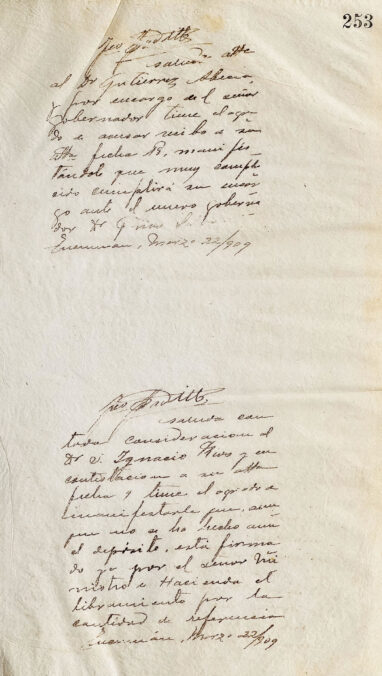 253
saluda atte
al Dr Gutierrez
y por encargo del señor
Gobernador tiene el agra-
do de acusar recibo a su
atta fecha 13, manifes-
tándole que muy compla-
cido cumplirá su encar-
go ante el nuevo goberna-
dor Dr
Tucumán, Marzo 22/909
saluda con
toda consideracion al
Dr D. Ignacio y en
contestacion a su atta
fecha 9 tiene el agrado de
manifestarle que, aun
que no se ha hecho aun
el depósito, está firma-
do ya por el señor Mi
nistro de Hacienda el
libramiento por la
cantidad de referencia
Tucumán, Marzo 22/909